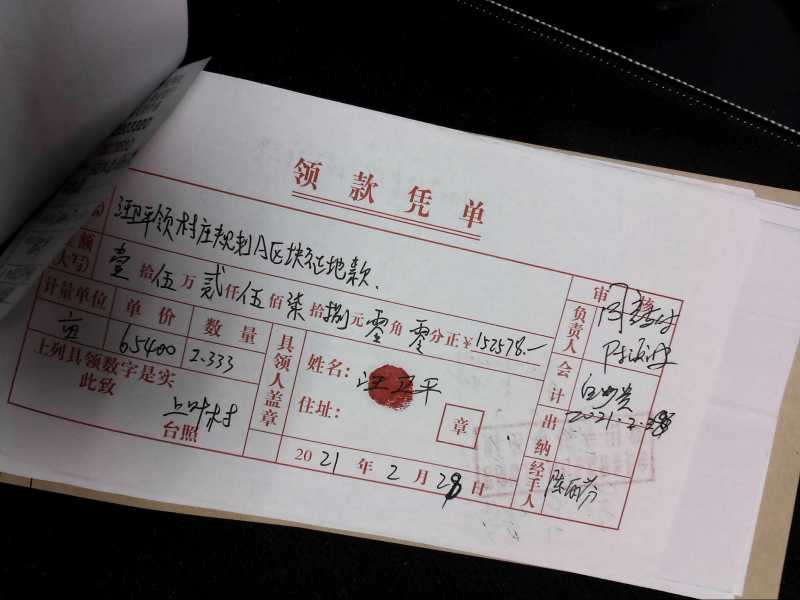 领款凭单
汪卫平领村庄规划A区块征地款.
金额
(大写) 壹拾伍万贰仟伍佰柒拾捌元零角零分正¥152578.—
计量单位 单价 数量
亩 65400 2.333
上列具领数字是实
此致
上叶村
台照
具领人盖章
姓名: 汪卫平
住址:
章
2021年2月28日
审核
负责人
会计
2021.2.28
出纳
经手人
陈丽芬